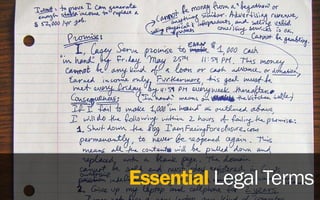 Intent: to prove I can generate
enough income to replace a
$52,000/yr job.
Cannot be money from a "begathon" or
anything similar. Advertising revenue,
and selling
consulting services is ok.
Cannot be gambling.
Promise:
I, Casey Serin promise to $1,000 cash
in hand by Friday May 25TH 11:59 PM. This money
cannot be any kind of a loan or cash advance or donation,
earned income only. Furthermore, this goal must be
met every friday by 11:59 PM every week thereafter.
Consequences: ("In hand" means
If I fail to make 1,000 in hand as outlined above
I will do the following within 2 hours of failing the promise:
1. Shut down the blog IAmFacingForeclosure.com
permanently, to never be reopened again. This
means all the content will be pulled down and
replaced with a blank page. The domain
cannot be sold and
2. Give up my laptop and cellphone for
Essential Legal Terms